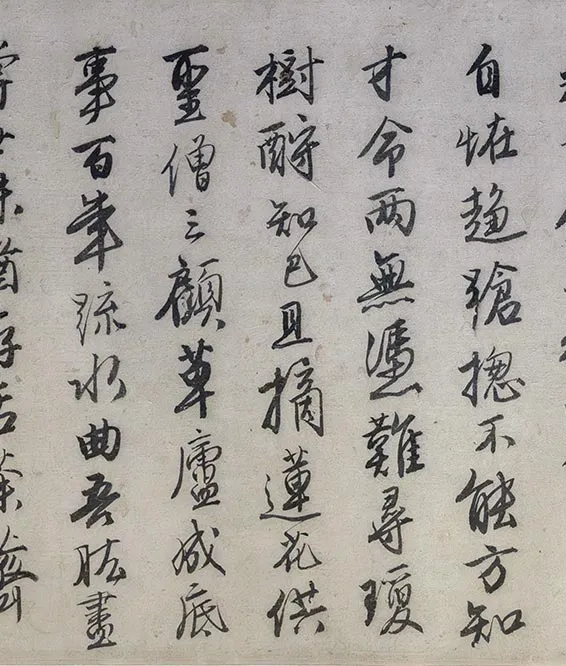 自恠趨蹌揔不能方知
才命两無憑難尋瓊
樹酧知己且摘蓮花供
聖僧三顧草廬成底
事百年疏水曲吾肱畫